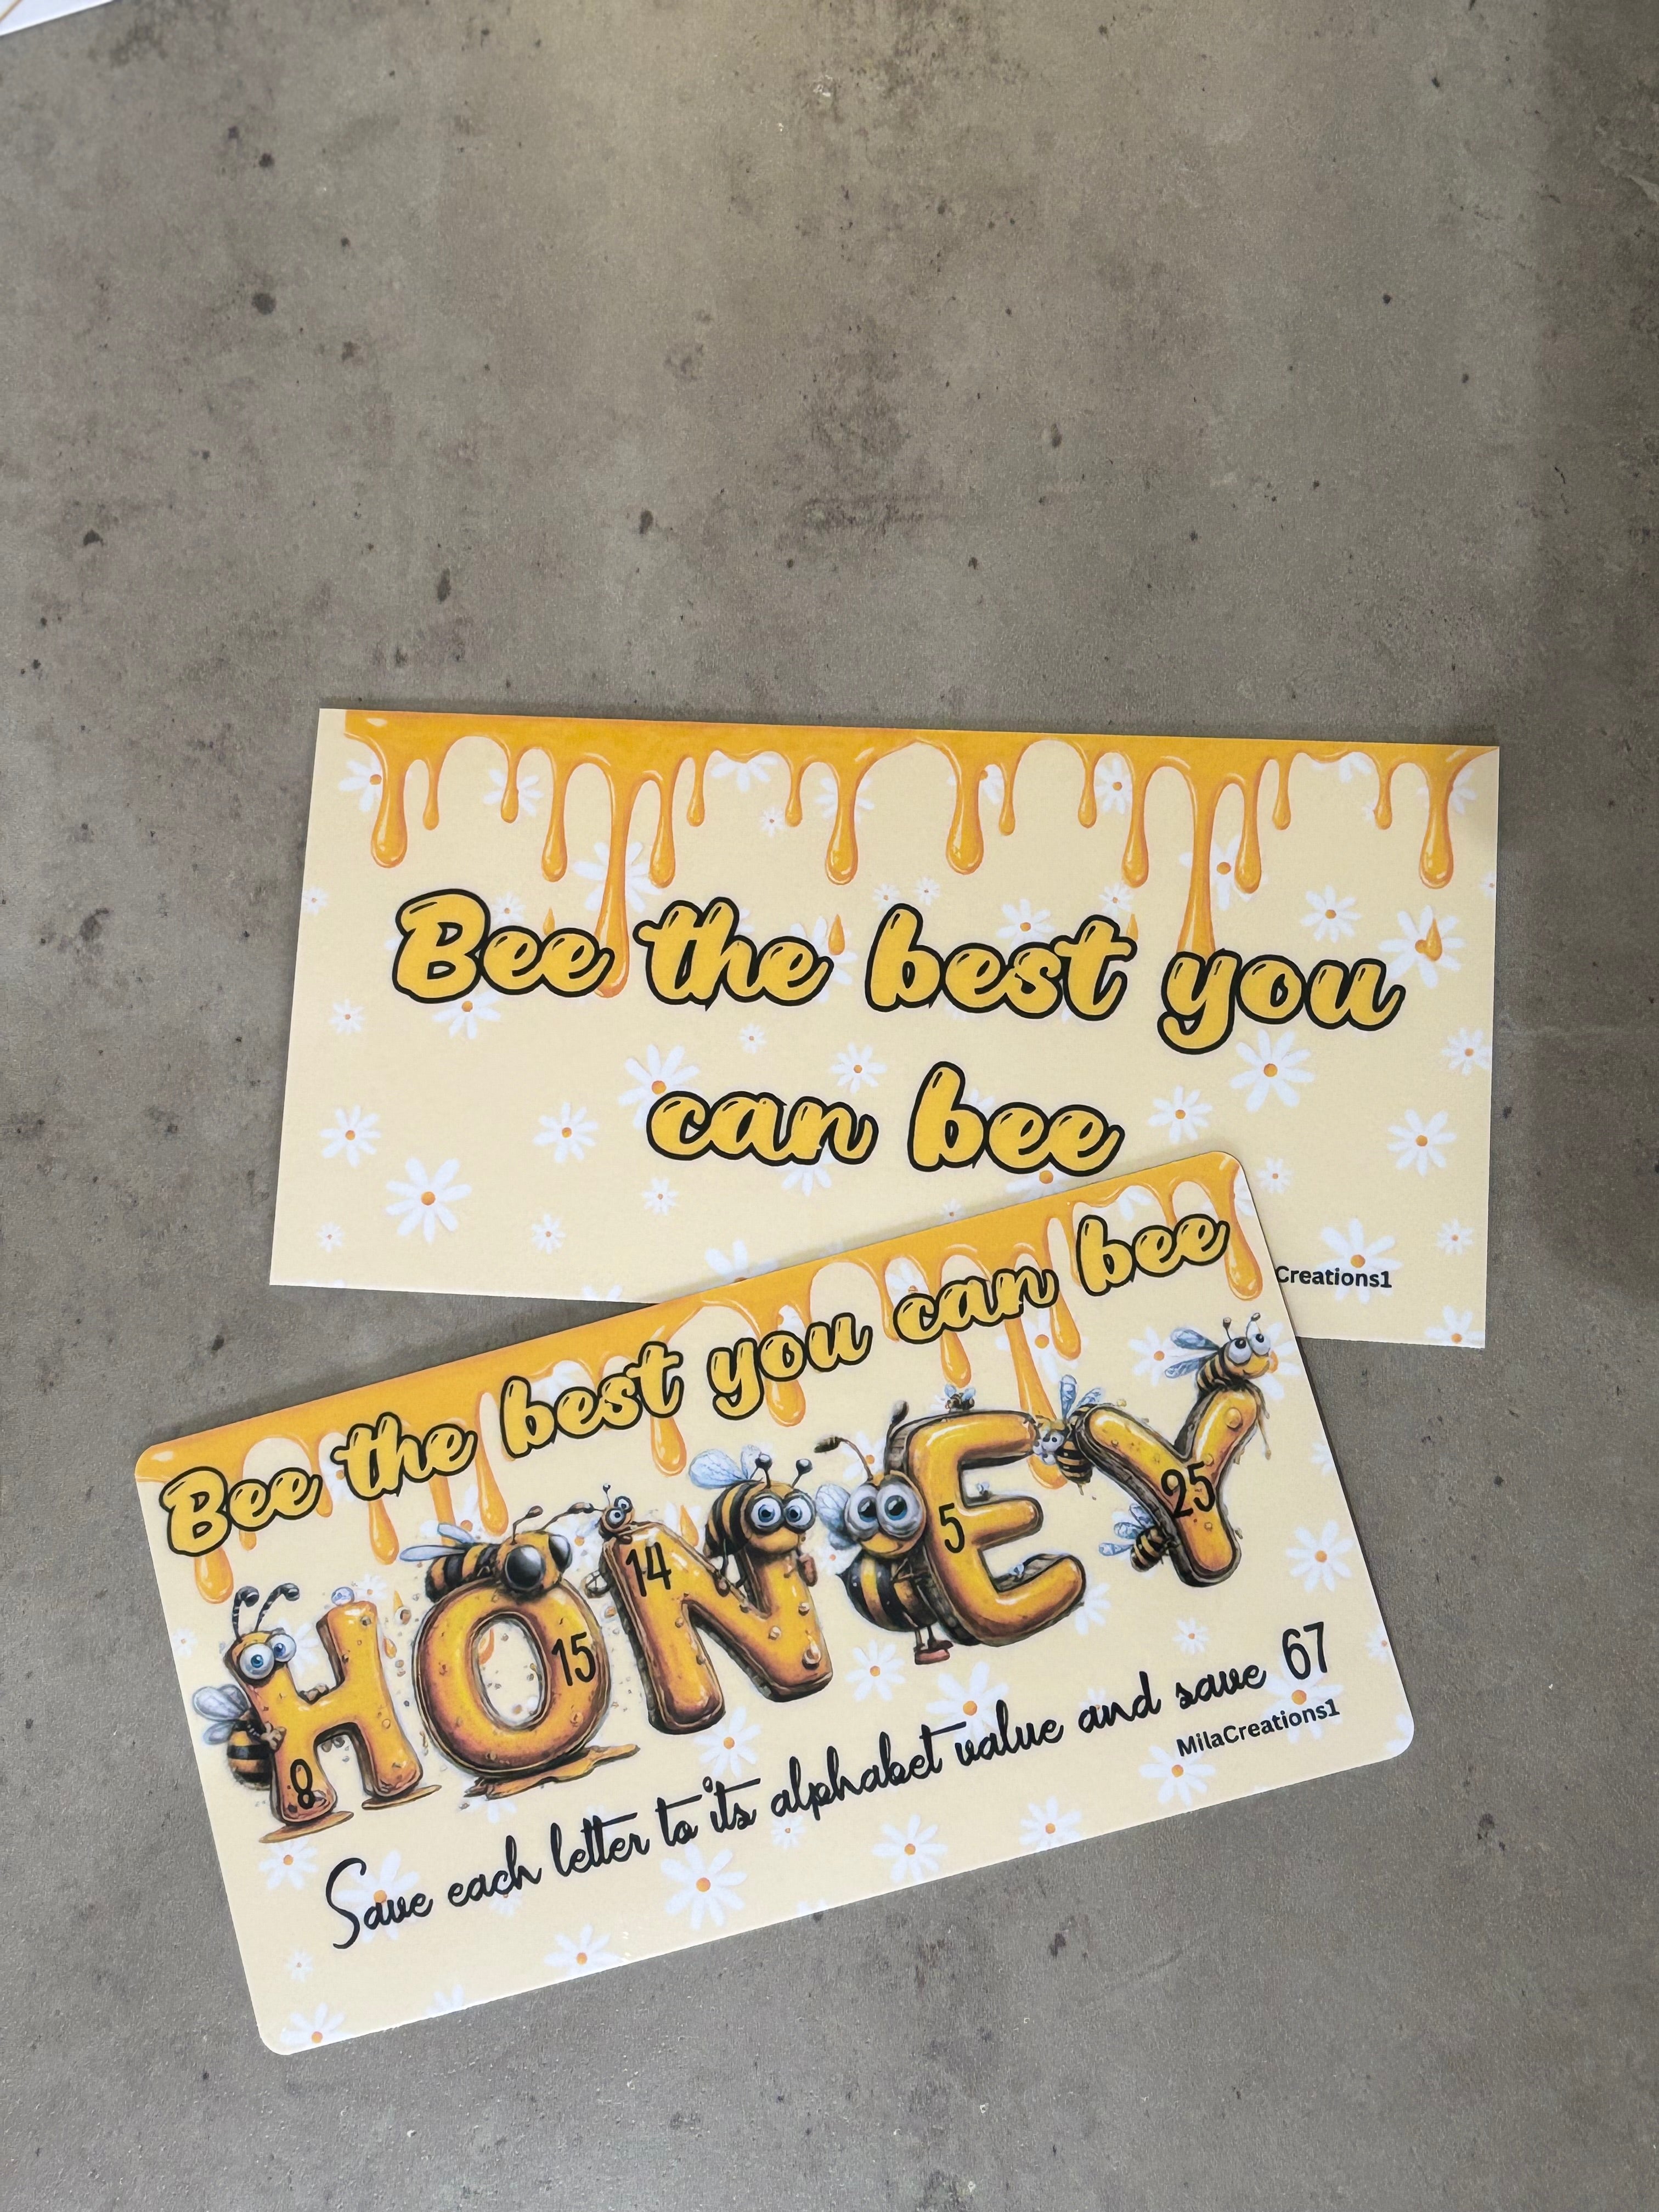 Bee the best you
can bee
Creations1
Bee the best you can bee
HONEY
8 15 14 5 25
Save each letter to its alphabet value and save 67
MilaCreations1